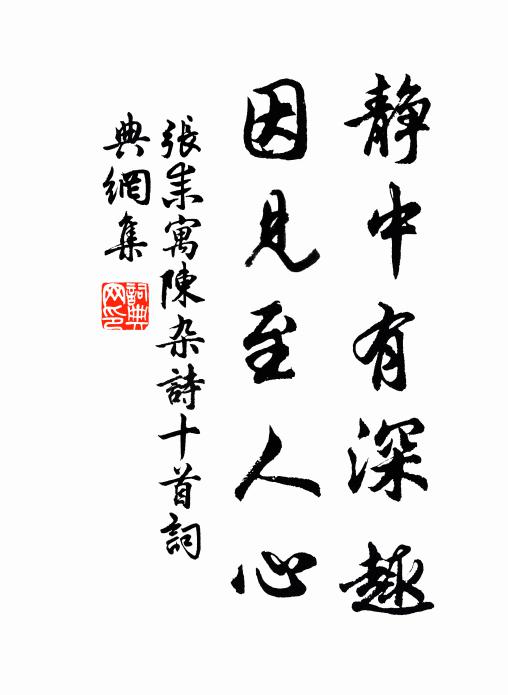 静中有深趣
因見至人心
張耒寓陳杂詩十首詞
典網集
詞典
网印